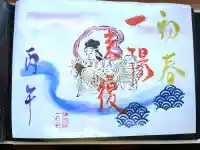 初春
一陽
来復
丙午